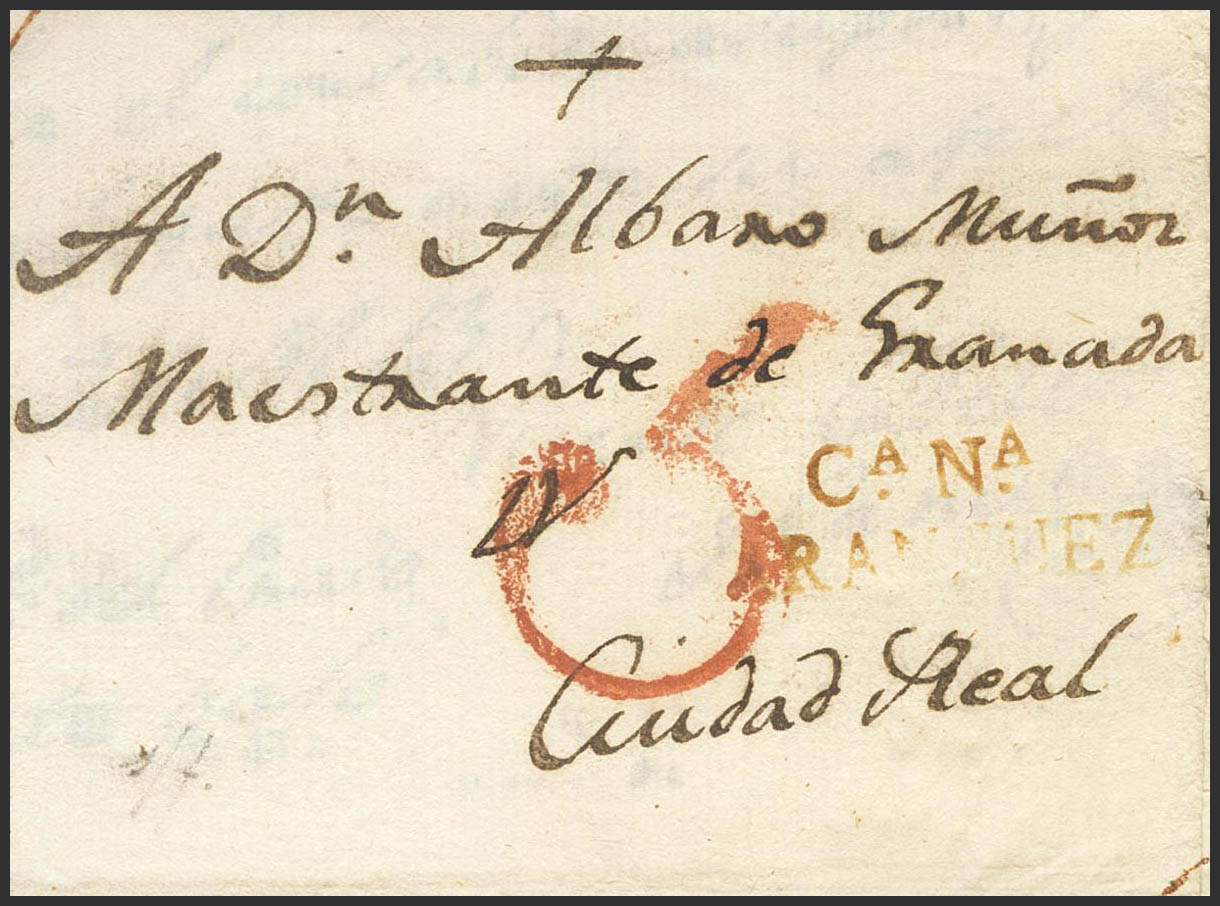 +
A D.n Albaro Muñoz
Maestrante de Granada
C.A N.A
ARANJUEZ
Ciudad Real